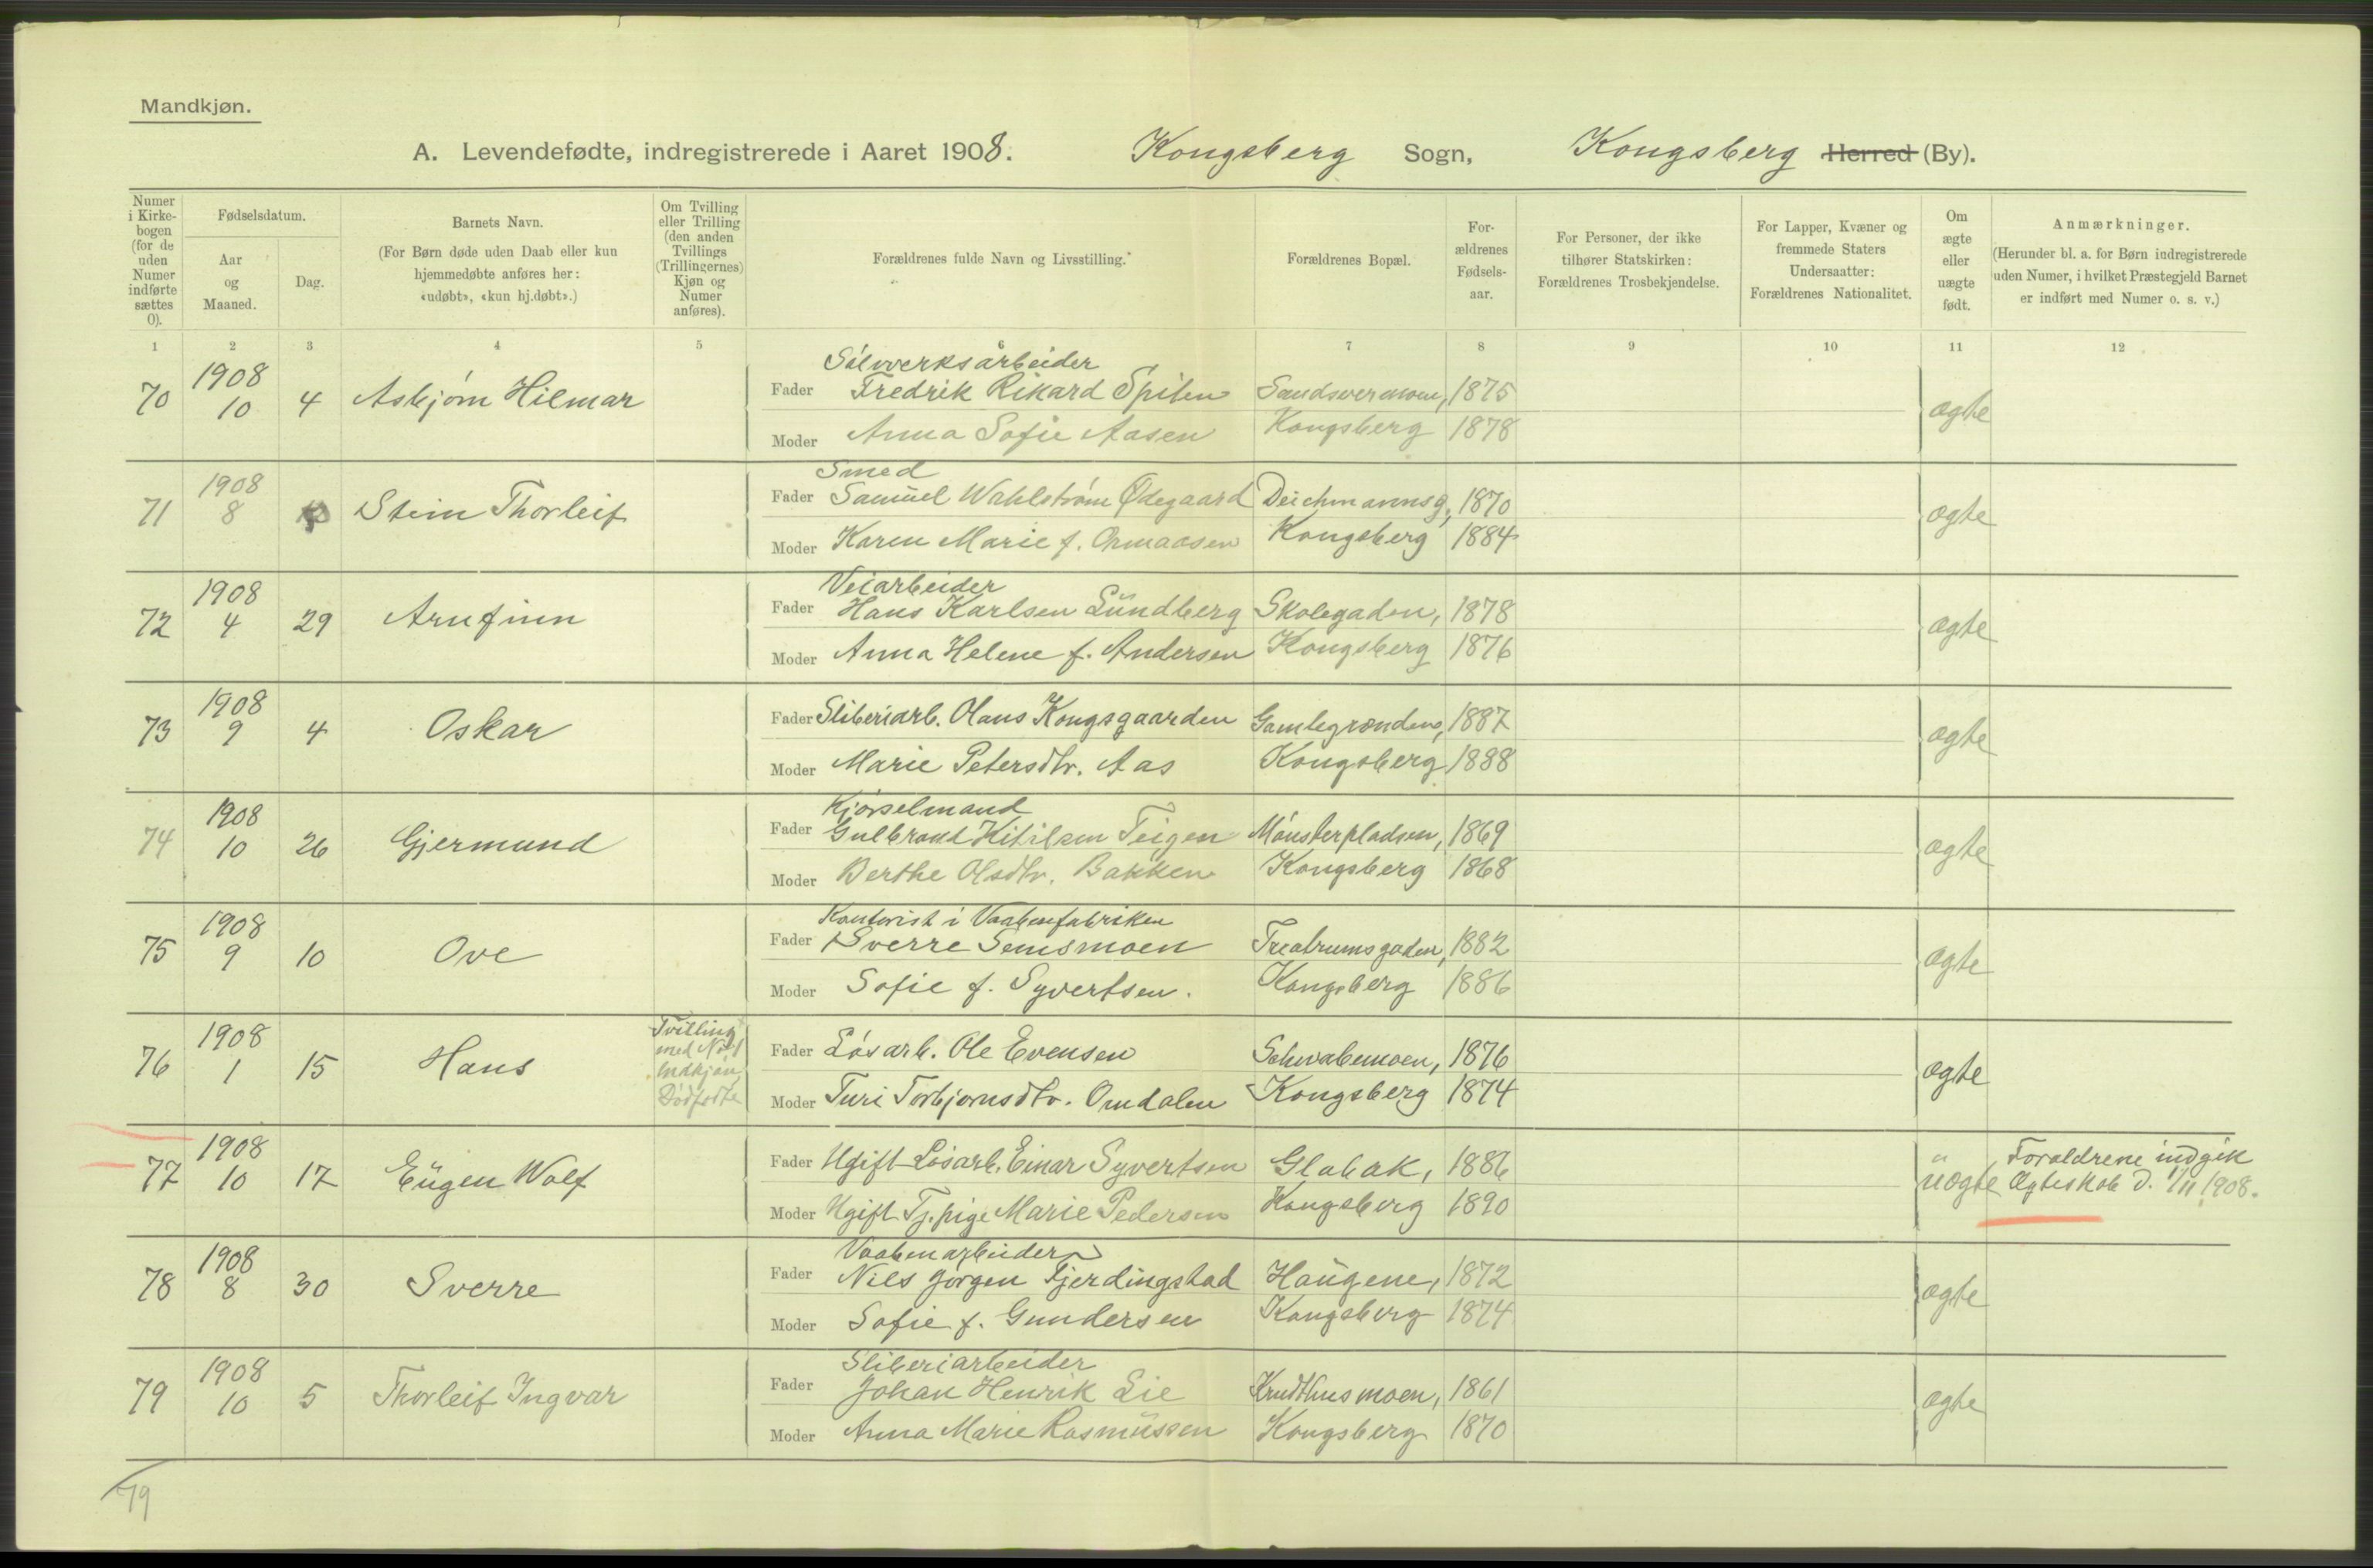 Mandkjøn.
A. Levendefødte, indregistrerede i Aaret 1908. Kongsberg Sogn, Kongsberg Herred (By).
Numer i Kirkebogen (for de uden Numer indførte sættes 0).
Fødselsdatum.
Aar og Maaned.
Dag.
Barnets Navn.
(For Børn døde uden Daab eller kun hjemmedøbte anføres her: «udøbt», «kun hj.døbt».)
Om Tvilling eller Trilling (den anden Tvillings (Trillingernes) Kjøn og Numer anføres).
Forældrenes fulde Navn og Livsstilling.
Forældrenes Bopæl.
Forældrenes Fødselsaar.
For Personer, der ikke tilhører Statskirken: Forældrenes Trosbekjendelse.
For Lapper, Kvæner og fremmede Staters Undersaatter: Forældrenes Nationalitet.
Om ægte eller uægte født.
Anmærkninger.
(Herunder bl. a. for Børn indregistrerede uden Numer, i hvilket Præstegjeld Barnet er indført med Numer o. s. v.)
1 2 3 4 5 6 7 8 9 10 11 12
Sølvverksarbeider
70 1908 10 4 Asbjørn Hilmar Fader Fredrik Rikard Spiten Sandsvermoen, 1875 ægte
Moder Anna Sofie Aasen Kongsberg 1878
Smed
71 1908 8 Stein Thorleif Fader Samuel Wahlstrøm Ødegaard Deichmannsg, 1870 ægte
Moder Karen Marie f. Ormaasen Kongsberg 1884
Veiarbeider
72 1908 4 29 Arnfinn Fader Hans Karlsen Lundberg Skolegaden, 1878 ægte
Moder Anna Helene f. Andersen Kongsberg 1876
73 1908 9 4 Oskar Fader Sliberiarb. Olaus Kongsgaarden Gamlegrænden, 1887 ægte
Moder Marie Petersdtr. Aas Kongsberg 1888
Kjørselmand
74 1908 10 26 Gjermund Fader Gulbrand Kittilsen Teigen Mønsterpladsen, 1869 ægte
Moder Berthe Olsdtr. Bakken Kongsberg 1868
Kontorist i Vaabenfabriken
75 1908 9 10 Ove Fader Sverre Semsmoen Treabrumsgaden, 1882 ægte
Moder Sofie f. Syvertsen. Kongsberg 1886
76 1908 1 15 Hans Tvilling med No 1 Mdkjøn, Dødfødte Fader Løsarb. Ole Evensen Schwabemoen, 1876 ægte
Moder Turi Torbjørnsdtr. Omdalen Kongsberg 1874
77 1908 10 17 Eugen Wolf Fader Ugift Løsarb. Einar Syvertsen Glabak, 1886 uægte Forældrene indgik
Ægteskab d. 1/11 1908.
Moder Ugift Tj.pige Marie Pedersen Kongsberg 1890
Vaabenarbeider
78 1908 8 30 Sverre Fader Nils Jørgen Fjerdingstad Haugene, 1872 ægte
Moder Sofie f. Gundersen Kongsberg 1874
Sliberiarbeider
79 1908 10 5 Thorleif Ingvar Fader Johan Henrik Lie Krudthusmoen, 1861 ægte
Moder Anna Marie Rasmussen Kongsberg 1870
79